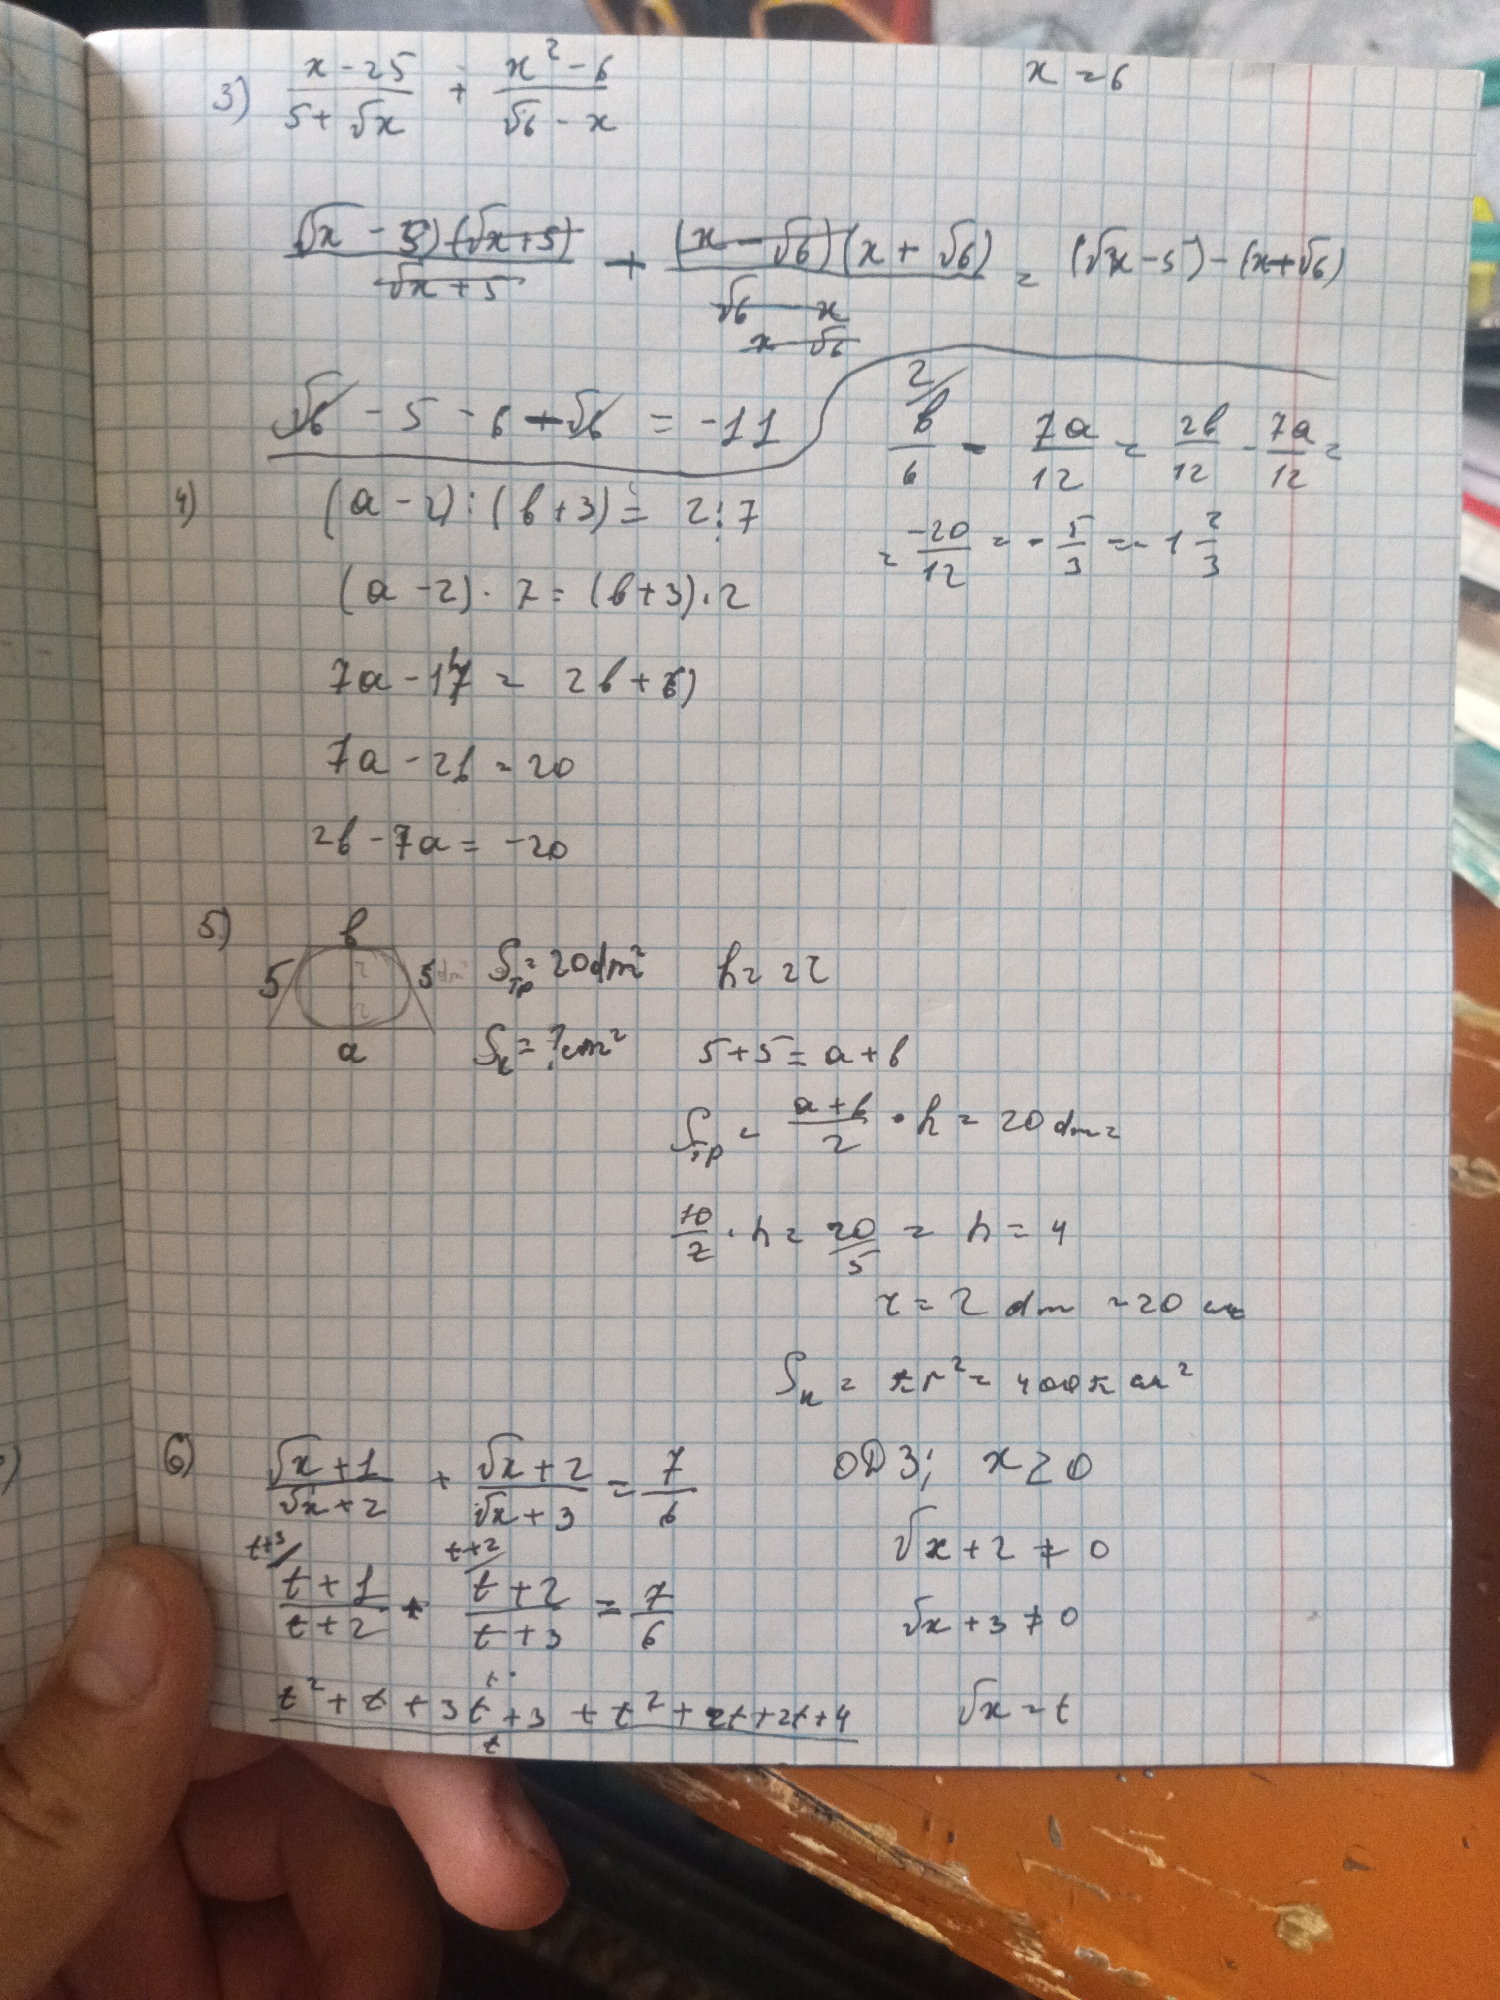 3) (x - 25)/(5 + √x) + (x² - 6)/(√6 - x) x = 6
(√x - 5)(√x + 5)/(√x + 5) + (x - √6)(x + √6)/(√6 - x) = (√x - 5) - (x + √6)
x - √6
√6 - 5 - 6 - √6 = -11
2/
b/6 - 7a/12 = 2b/12 - 7a/12 =
= -20/12 = -5/3 = -1 2/3
4) (a - 2) : (b + 3) = 2 : 7
(a - 2) · 7 = (b + 3) · 2
7a - 14 = 2b + 6
7a - 2b = 20
2b - 7a = -20
5) b
5 5 dm
r
r
a
Sтр = 20 dm² h = 2r
Sк = ? cm² 5 + 5 = a + b
Sтр = (a + b)/2 · h = 20 dm²
10/2 · h = 20/5 = h = 4
r = 2 dm = 20 cm
Sк = πr² = 400π cm²
6) (√x + 1)/(√x + 2) + (√x + 2)/(√x + 3) = 7/6 ОДЗ; x ≥ 0
√x + 2 ≠ 0
t+3/ t+2/
(t + 1)/(t + 2) + (t + 2)/(t + 3) = 7/6 √x + 3 ≠ 0
t² + t + 3t + 3 + t² + 2t + 2t + 4 √x = t
t